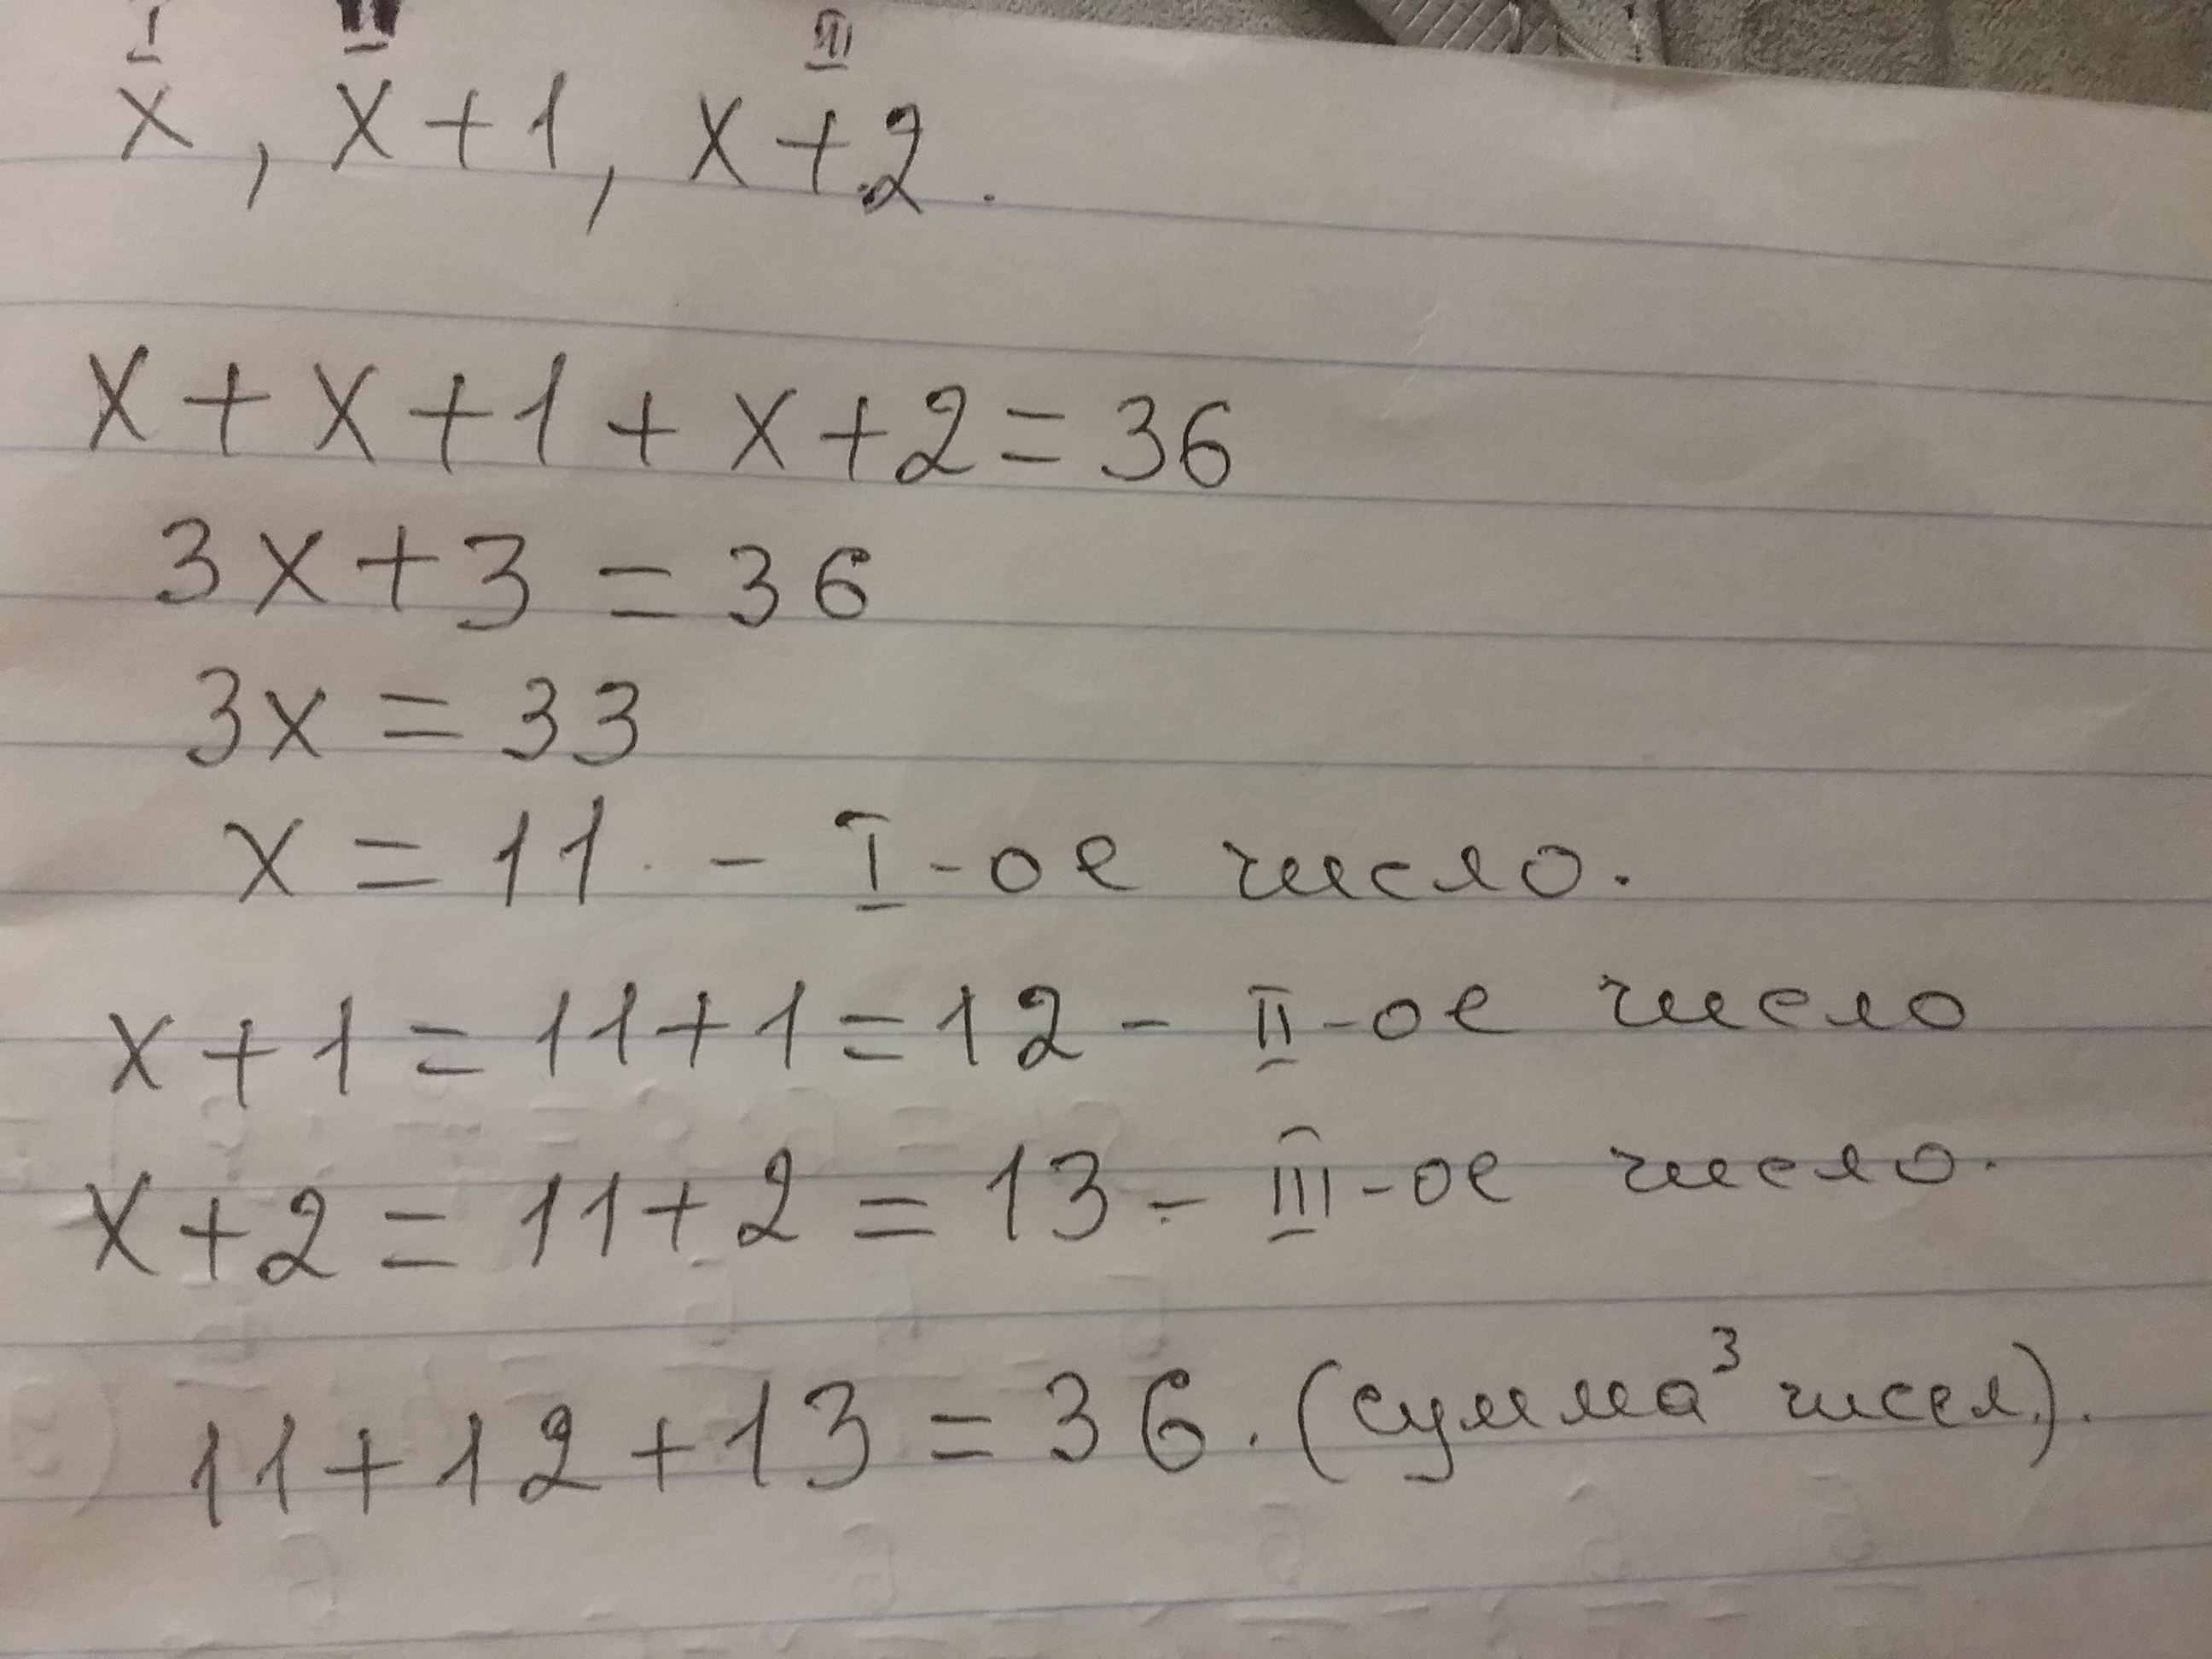 I II III
x, x+1, x+2.
x + x + 1 + x + 2 = 36
3x + 3 = 36
3x = 33
x = 11 - I-ое число.
x + 1 = 11 + 1 = 12 - II-ое число
x + 2 = 11 + 2 = 13 - III-ое число.
11 + 12 + 13 = 36. (сумма 3 чисел).